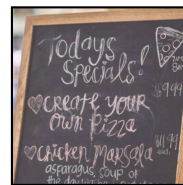 Today's
Specials!
CREATE YOUR
OWN Pizza
$9.99
CHICKEN MARSALA
$11.99
asparagus, soup or